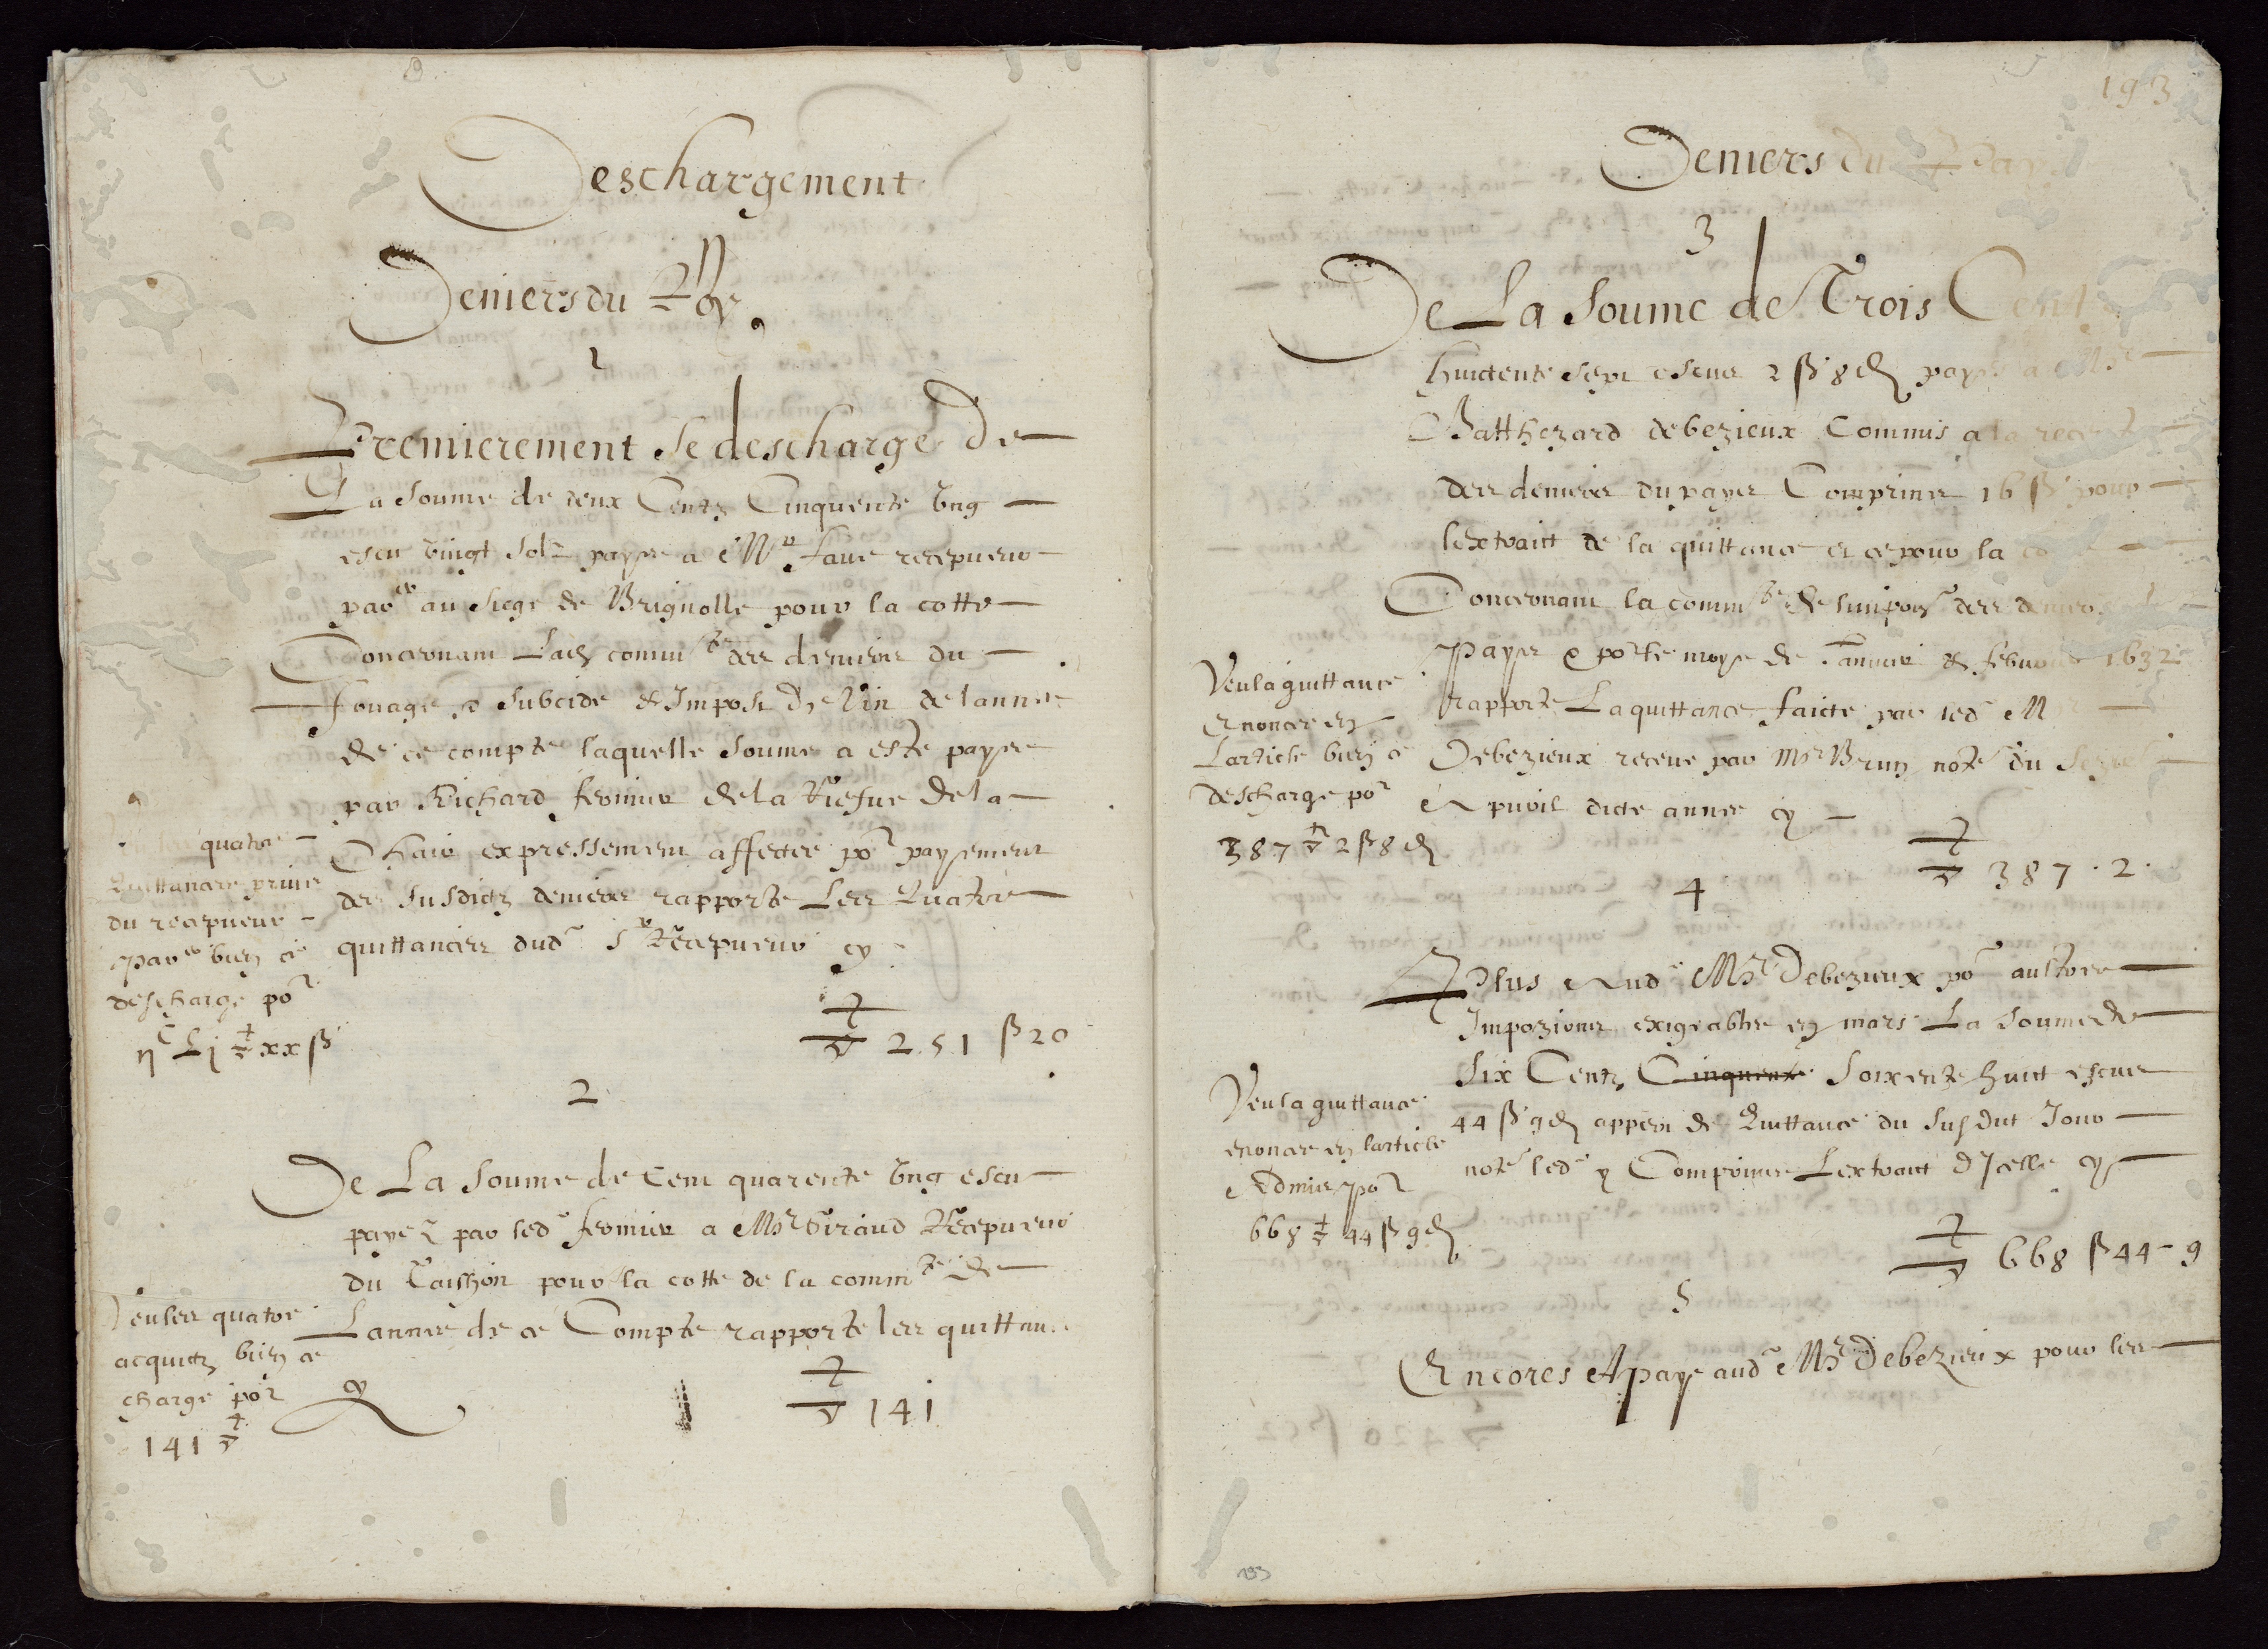 Deschargement
Deniers du Roy.
1
Premierement Se descharge De
La Soume de deux Centz Cinquente Ung
escu vingt solz payes a Mr faue recepueur
parer au siege de Brignolle pour la cotte
Concernant Lad comm.te des deniers du
fouage subcide & Impost de Vin de lannee
de ce compte laquelle soume a este payee
par Richard fermier de la Riesue de la
Chair expressement affectee por payement
des susdictz deniers rapporte Les Quatre
quittances dud Sr Recepueur cy
251 ß 20
quatre
Quittances prinses
du recepueur
parer bien ce
descharge por
ijC Lj xx ß
2
De La Soume de Cent quarente Ung escu
payez par led fermier a Mr Giraud Recepueur
du Taillion pour la cotte de la commte de
Lannee de ce Compte rapporte les quittan
cy
141
Veu les quatre
acquitz bien ce
charge por
141
193
Deniers du Pay
3
De La Soume de Trois Cent
huictente sept escus 2 ß 8 d payes a Mr
Balthezard debezieux Commis a la recepte
des deniers du payes Comprins 16 ß pour
lextraict de la quittance et ce pour la
Concernant la commte de limpon des deniers
Payes por le moys de Januier & feburier 1632
rapporte La quittance faicte par led M
Debezieux receue par Mr Brun note du Sezie
Apuril dicte annee cy
387 . 2 .
Veu la quittance
Enoncee en
Larticle bien ce
descharge por
387 2 ß 8 d
4
Plus Aud Mr Debezieux por aultres
Impozions exigeables en mars La soume de
Six Centz Cinquente Soixente huict escus
44 ß 9 d appert de Quittance du susdict Jour
note led y Comprins Lextraict dIcelle cy
668 ß 44 - 9
Veu la quittance
enoncee en larticle
Admis por
668 44 ß 9 d
5
Encores A paye aud Mr Debezieux pour les
193